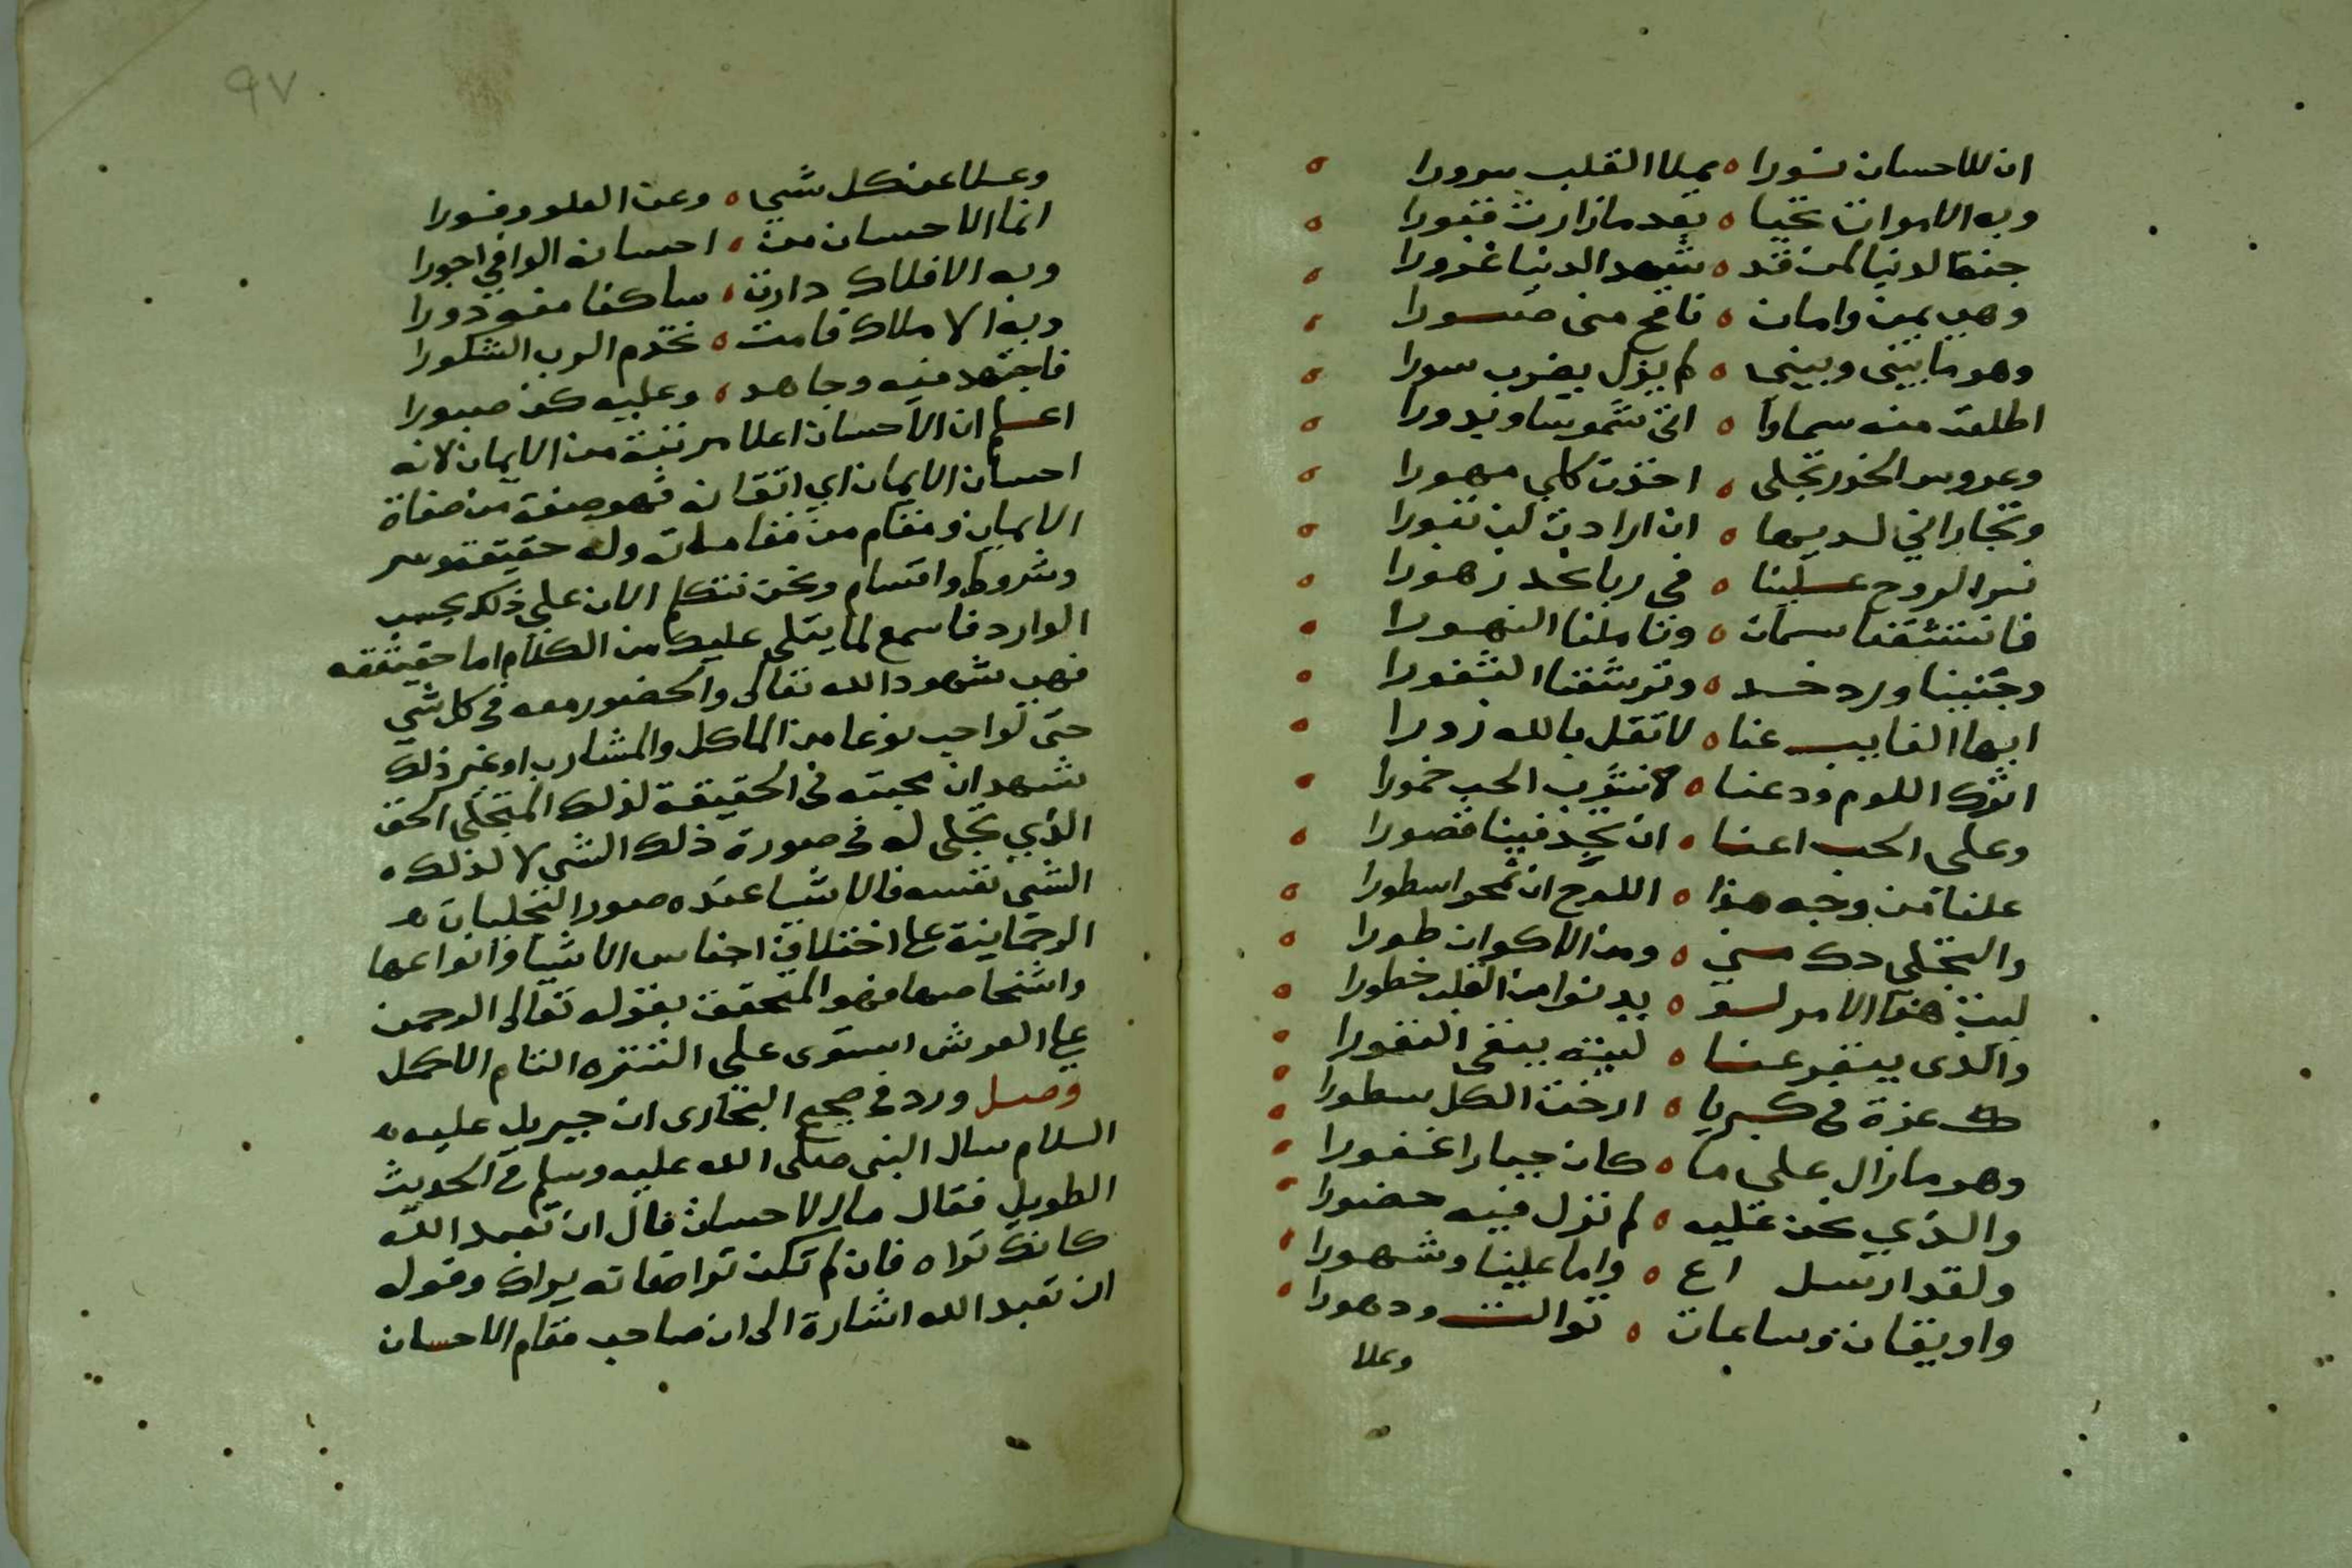 ان للاحسان نورا ه يملا القلب سرورا ه
وبه الاموات تحيا ه بعد مازارت قبورا ه
جنة الدنيا لمن قد ه شهد الدنيا غرورا ه
وهي يمن وامان ه نافخ مني صورا ه
وهو ما بيني وبيني ه لم يزل يضرب سورا ه
اطلعت منه سماوا ه اتى شموسا وبدورا ه
وعروس الخدر تجلى ه اخذت كلي مهورا ه
وتجاراني لديها ه ان ارادت لن تبورا ه
نثر الروح علينا ه في ربا نجد زهورا ه
فانتشقنا نسمات ه وتاملنا النهورا ه
وجنينا ورد خد ه وترشفنا الثغورا ه
ايها الغايب عنا ه لا تقل بالله زورا ه
اترك اللوم ودعنا ه لانشرب الحب خمورا ه
وعلى الحب اعنا ه ان تجد فينا قصورا ه
علنا من وجه هذا ه اللوح ان نمحو سطورا ه
والتجلي دك مني ه ومن الاكوان طورا ه
ليت هذا الامر لو ه يدنوا من القلب خطورا ه
والذى ينفر عنا ه ليته يبقى النفورا ه
ك عزة فى كبريا ه ارخت الكل سطورا ه
وهو مازال على ما ه كان جبارا غفورا ه
والذي نحن عليه ه لم نزل فيه حضورا ه
ولقد ارسل اع ه واما علينا وشهورا ه
واويقات وساعات ه توالت ودهورا ه
وعلا
٩٧
وعلا عن كل شي ه وعن العلو وفورا
انما الاحسان من ه احسانه الوافي اجورا
وبه الافلاك دارت ه ساكنا منه دورا
وبه الاملاك قامت ه تخدم الرب الشكورا
فاجتهد فيه وجاهد ه وعليه كن صبورا
اعلم ان الاحسان اعلا مرتبة من الايمان لانه
احسان الايمان اي اتقانه فهو صفة من صفاة
الايمان ومقام من مقاماته وله حقيقة وسر
وشروط واقسام ونحن نتكلم الان على ذلك بحسب
الوارد فاسمع لما يتلى عليك من الكلام اما حقيقته
فهي شهود الله تعالى والحضور معه فى كل شي
حتى لو احب نوعا من الماكل والمشارب او غير ذلك
شهد ان محبته فى الحقيقة لذلك المتجلى الحق
الذي تجلى له فى صورة ذلك الشى لا لذلك ه
الشى نفسه فالاشيا عنده صور التجليات ه
الرحمانية على اختلاف اجناس الاشيا وانواعها
واشخاصها فهو المتحقق بقوله تعالى الرحمن
على العرش استوى على التنزه التام الاكمل
وصل ورد فى صحيح البخارى ان جبريل عليه
السلام سال النبى صلى الله عليه وسلم فى الحديث
الطويل فقال ما الاحسان قال ان تعبد الله
كانك تراه فان لم تكن تراه فانه يراك وقوله
ان تعبد الله اشارة الى ان صاحب مقام الاحسان